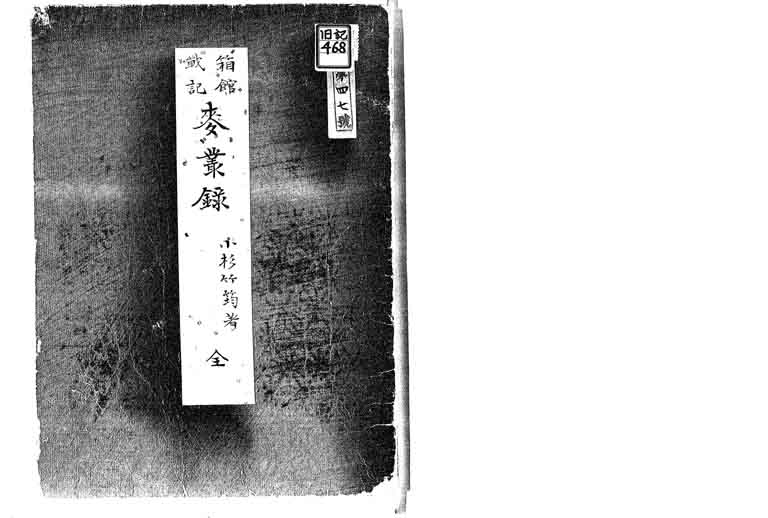 旧記
468
第四七號
箱館
戦記
麥叢録
小杉竹筠著
全